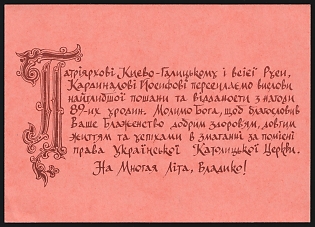 Патріярхові Києво-Галицькому і всієї Руси,
Кардиналові Йосифові пересилаємо вислови
найглибшої пошани та відданости з нагоди
89-их уродин. Молимо Бога, щоб благословив
Ваше Блаженство добрим здоров'ям, довгим
життям та успіхами в змаганні за помісні
права Української Католицької Церкви.
На Многая Літа, Владико!